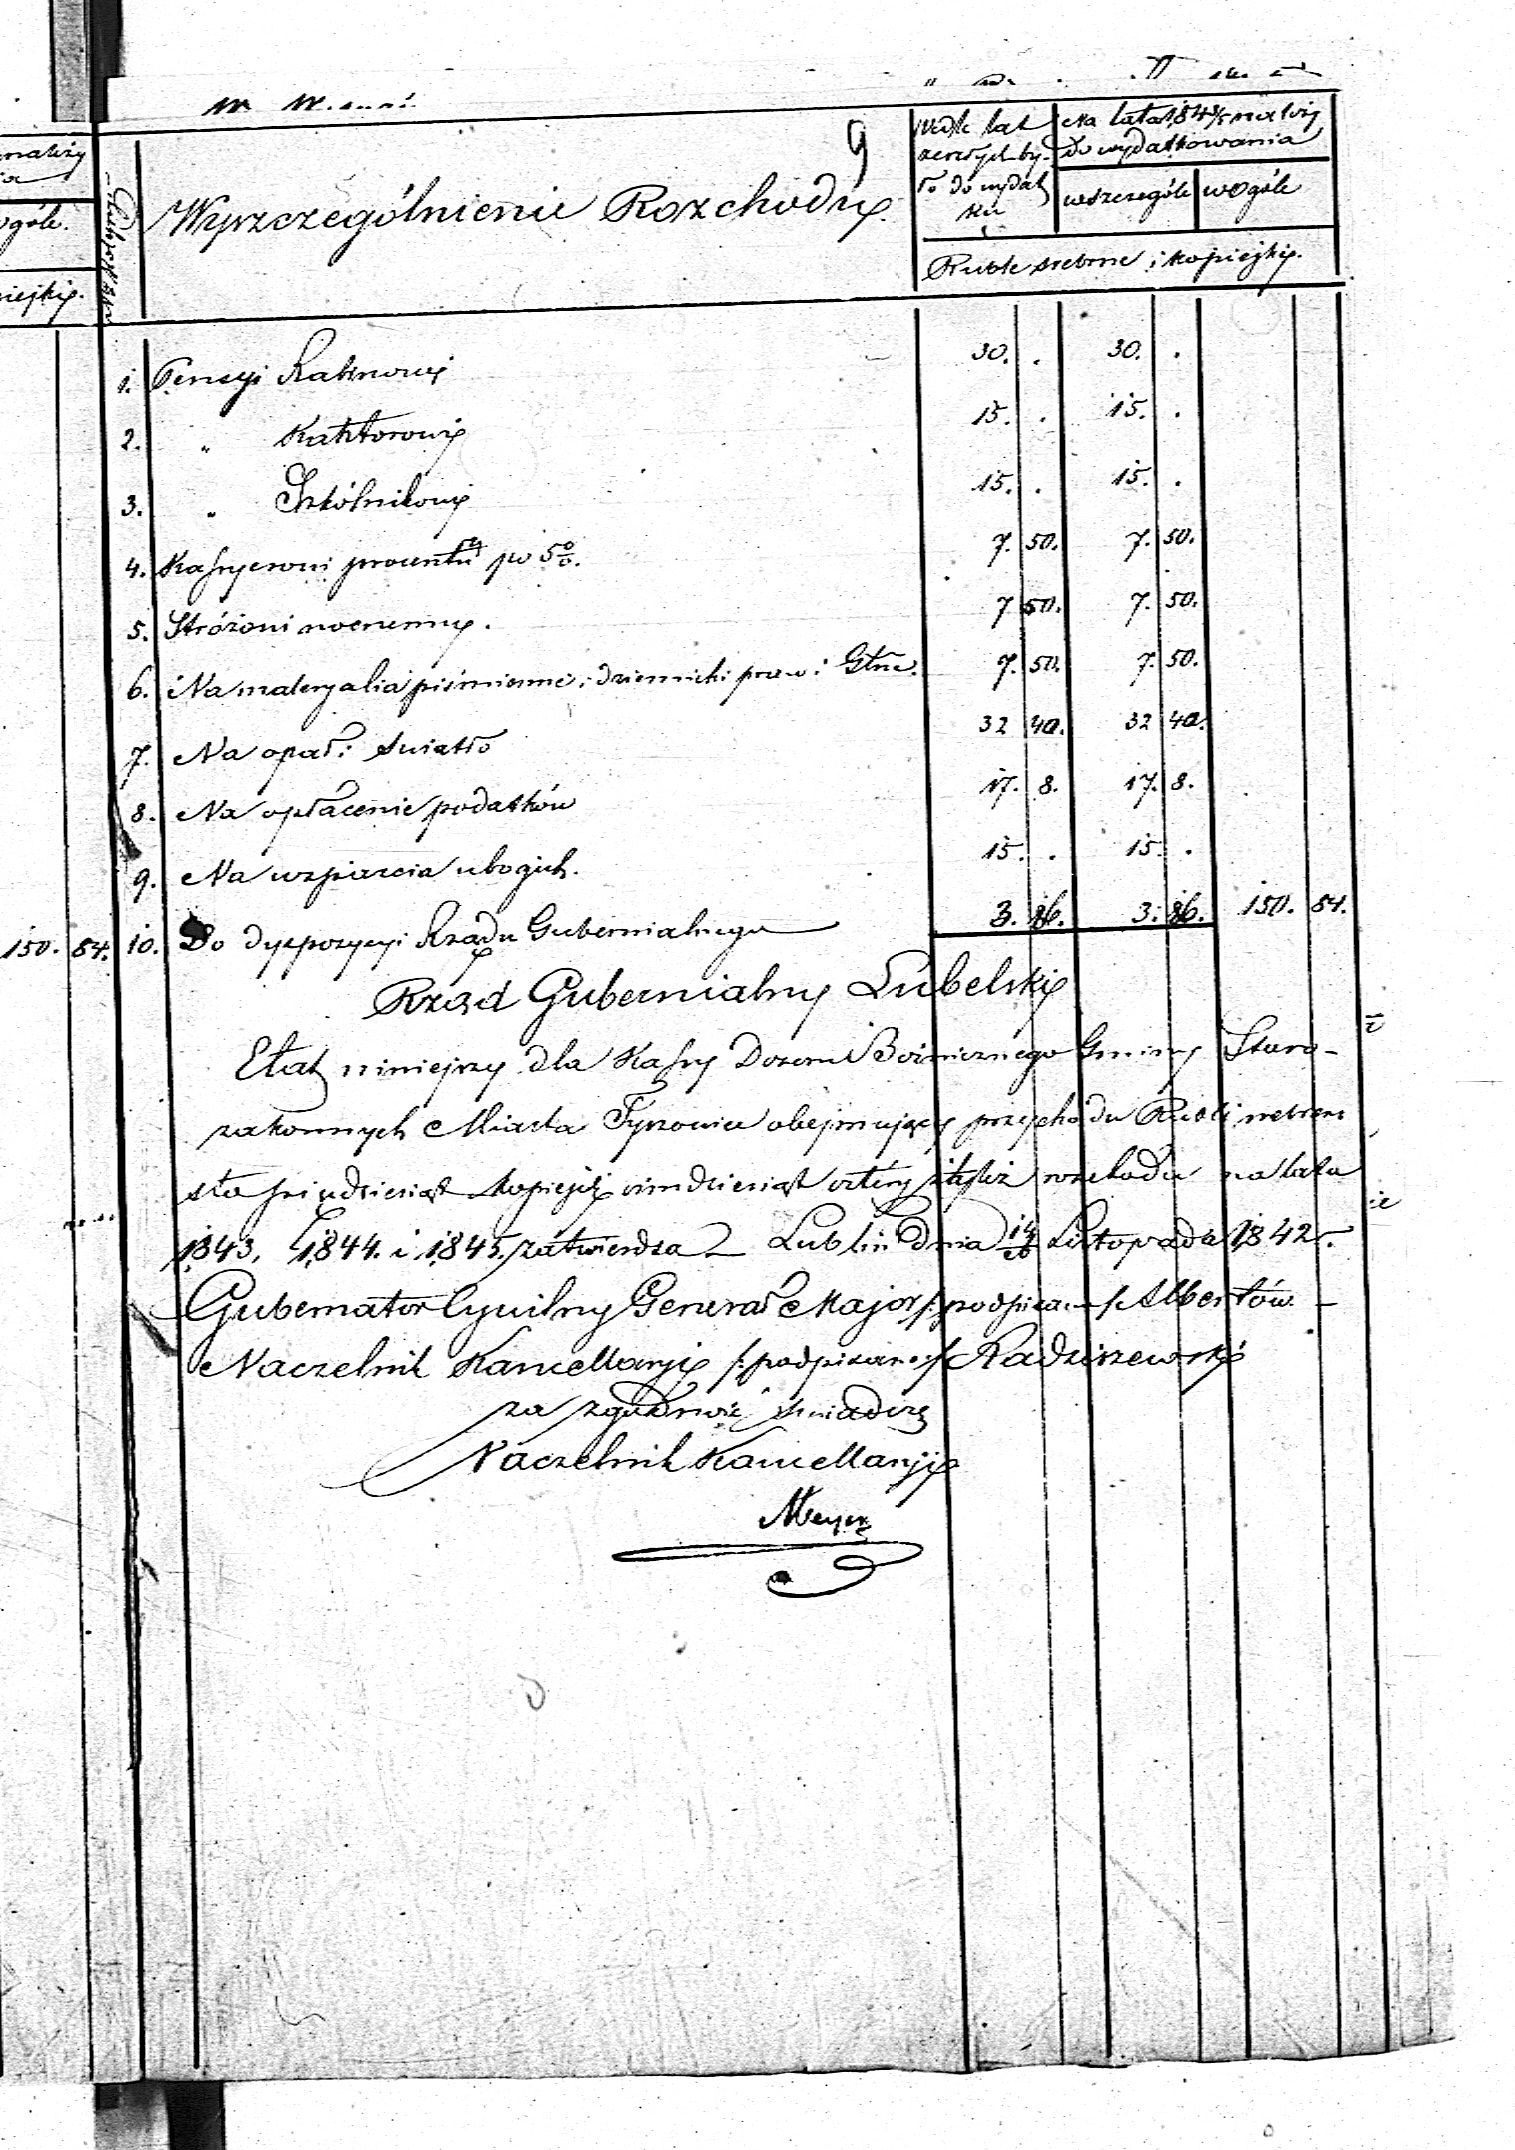 9
Wyszczególnienie Rozchodu
Wedle lat
zeszłych by-
ło do wydat
ku
Na lata 184 3/5 należy
do wydatkowania
wszczególe wogóle
Ruble srebrne i kopiejki.
ogóle.
1. Pensyi Rabinowi 30. . 30. .
2. " Kantorowi 15. . 15. .
3. " Szkólnikowi 15. . 15. .
4. Kassyerowi procentu po 5%. 7. 50. 7. 50.
5. Stróżowi nocnemu. 7 50. 7. 50.
6. Na materyalia piśmienne i dzienniki praw i 7. 50. 7. 50.
7. Na opał i światło 32 40. 32 40.
8. Na opłacenie podatków 17. 8. 17. 8.
9. Na wsparcia ubogich. 15. . 15. .
150. 84. 10. Do dyspozycyi Rządu Gubernialnego 3. 86. 3. 86. 150. 84.
Rząd Gubernialny Lubelski
Etat niniejszy dla Kassy Dozoru Bóżnicznego Gminy Staro-
zakonnych Miasta Tyszowiec obejmujący przychodu Rubli srebrem
sto pięćdziesiąt kopiejek ośmdziesiąt cztery i tyleż rozchodu na lata
1843, 1844. i 1845, zatwierdza Lublin dnia 14/26 Listopada 1842 r.
Gubernator Cywilny Generał Major /:podpisano:/ Albertów
Naczelnik Kancellaryi /:podpisano:/ Radziszewski
za zgodność świadczę
Naczelnik Kancellaryi
Meyer